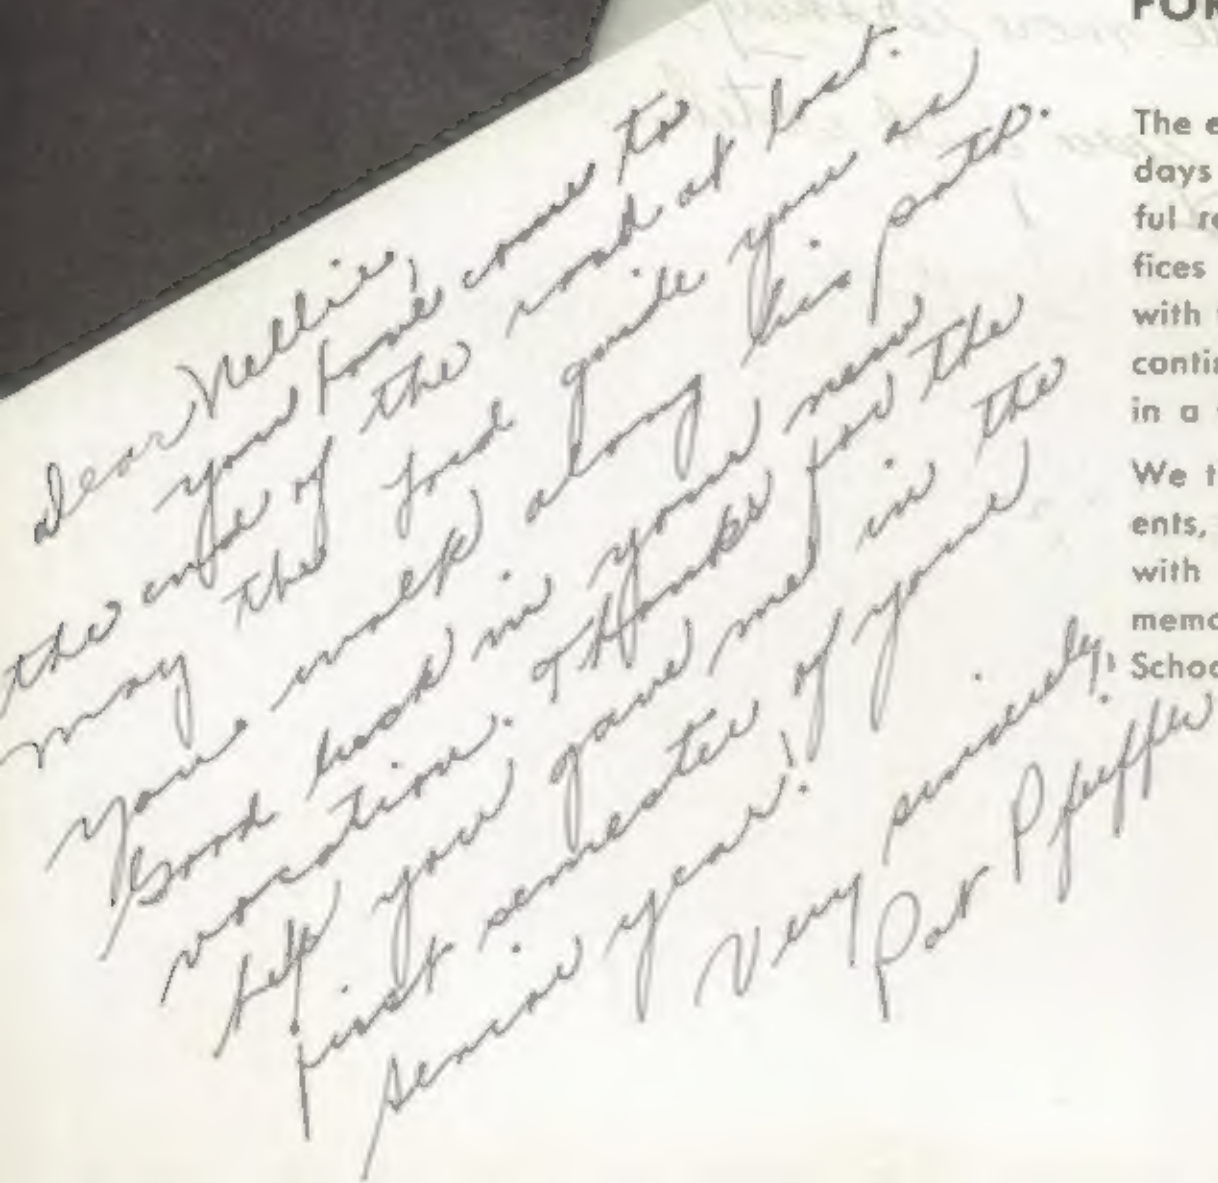 Dear Nellie,
you have come to
the end of the road at last.
May the Lord guide you as
you walk along his path.
Good luck in your new
vocation. Thanks for the
help you gave me in the
first semester of your
senior year!
Very sincerely,
Pat Pfeiffer
FOR
The e
days
ful re
fices
with
contin
in a
We t
ents,
with
memo
Schoo